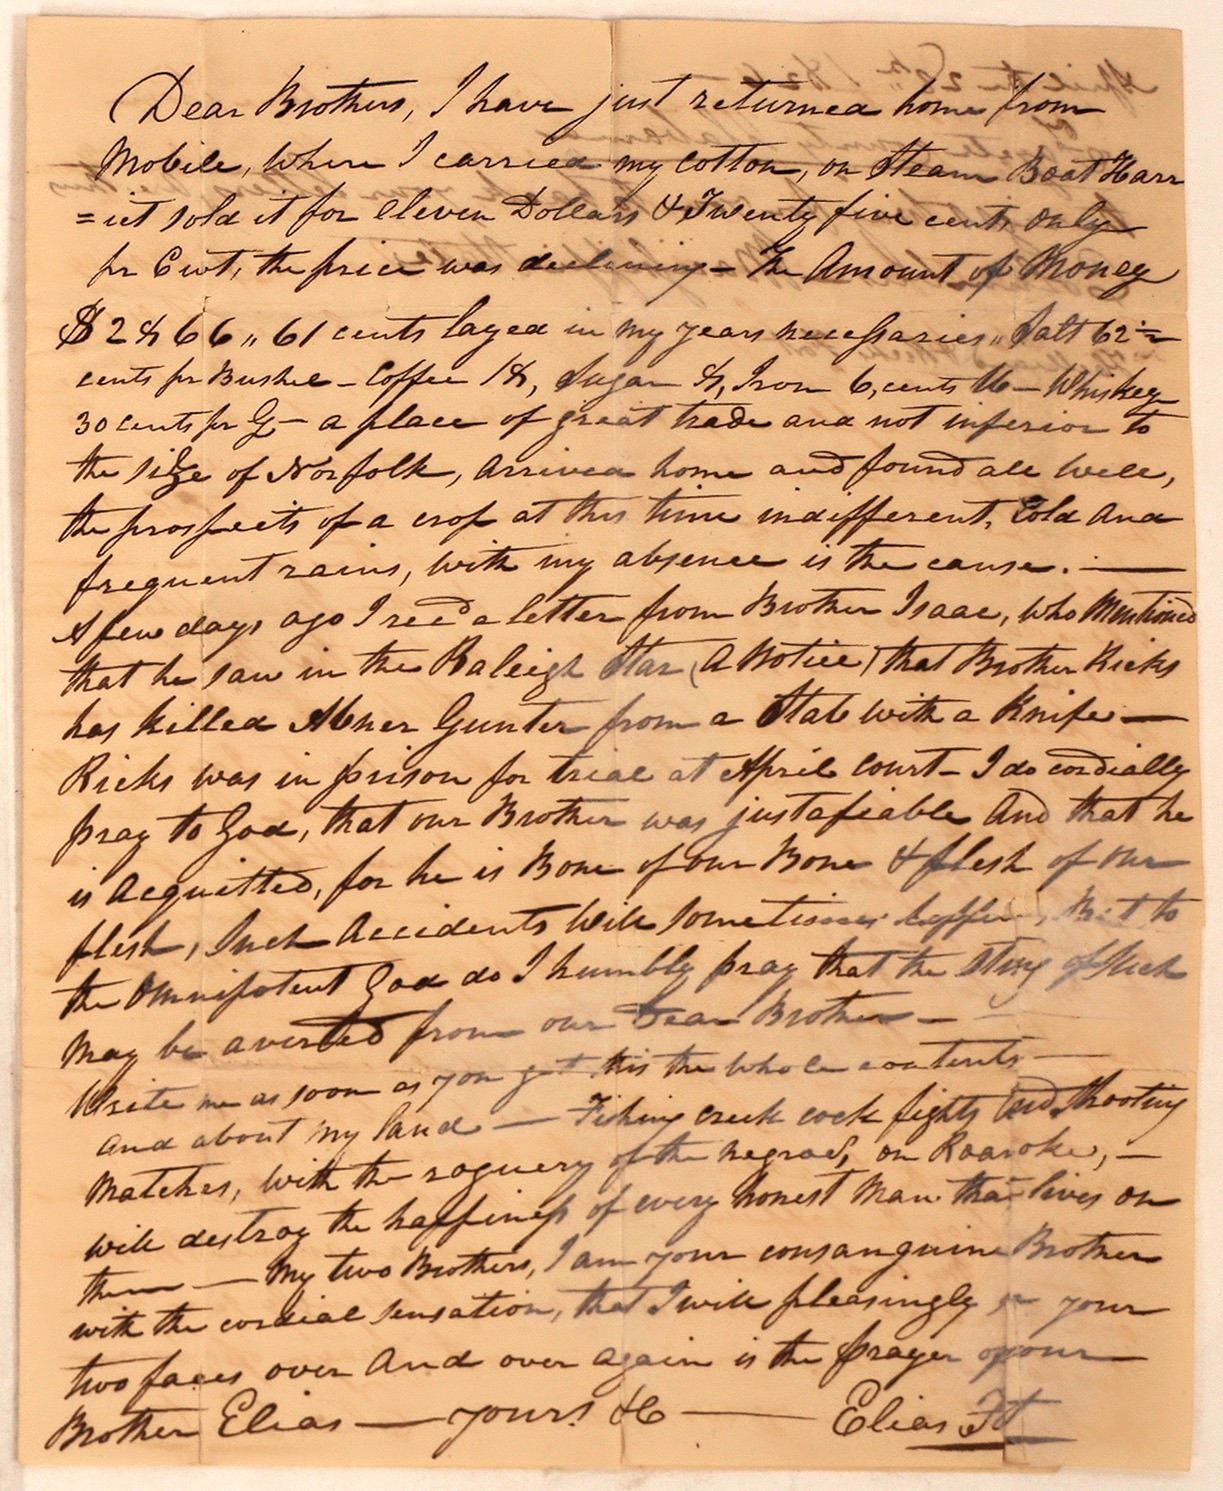 Dear Brothers, I have just returned home from
Mobile, Where I carried my Cotton, on Steam Boat Harr
=iet sold it for Eleven Dollars & Twenty five cents Only
pr Cwt, the price was declining - The Amount of Money
61 cents layed in my years necessaries,, Salt 62
cents pr Bushel - Coffee 18, Sugar Iron 6, cents Whiskey
30 cents pr G - a place of great trade and not inferior to
the size of Norfolk, Arrived home and found all Well,
the prospects of a crop at this time indifferent, Cold And
frequent rains, With my absence is the cause. -
A few days ago I recd a letter from Brother Isaac, Who Mentioned
that he saw in the Raleigh Star (A Notice) that Brother Ricks
has killed Abner Gunter from a Stab With a Knife -
Ricks was in prison for trial at April Court - I do cordially
pray to God, that our Brother was justafiable And that he
is Acquitted, for he is Bone of our Bone & flesh of our
flesh, Such Accidents Will sometimes happen, But to
the Omnipotent God do I humbly pray that the sting of Such
May be averted from our Dear Brother -
Write me as soon as you get this the Whole contents -
And about my land - Fishing creek cock fights and Shooting
Matches, With the roguery of the negroes, on Roanoke, -
Will destroy the happiness of every honest Man that lives on
them - My two Brothers, I am your consanguine Brother
with the cordial sensation, that I will pleasingly your
two faces over And over again is the prayer of your
Brother Elias - yours &C - Elias